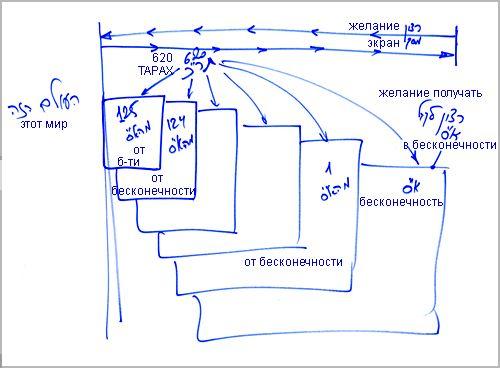 желание רצון
экран מסך
620 620
ТАРАХ
желание получать
רצון לקבל
א"ס
в бесконечности
העולם הזה
этот мир
125
מהא"ס
от
б-ти
124
מהא"ס
от
бесконечности
1
מהא"ס
от бесконечности
א"ס
бесконечность